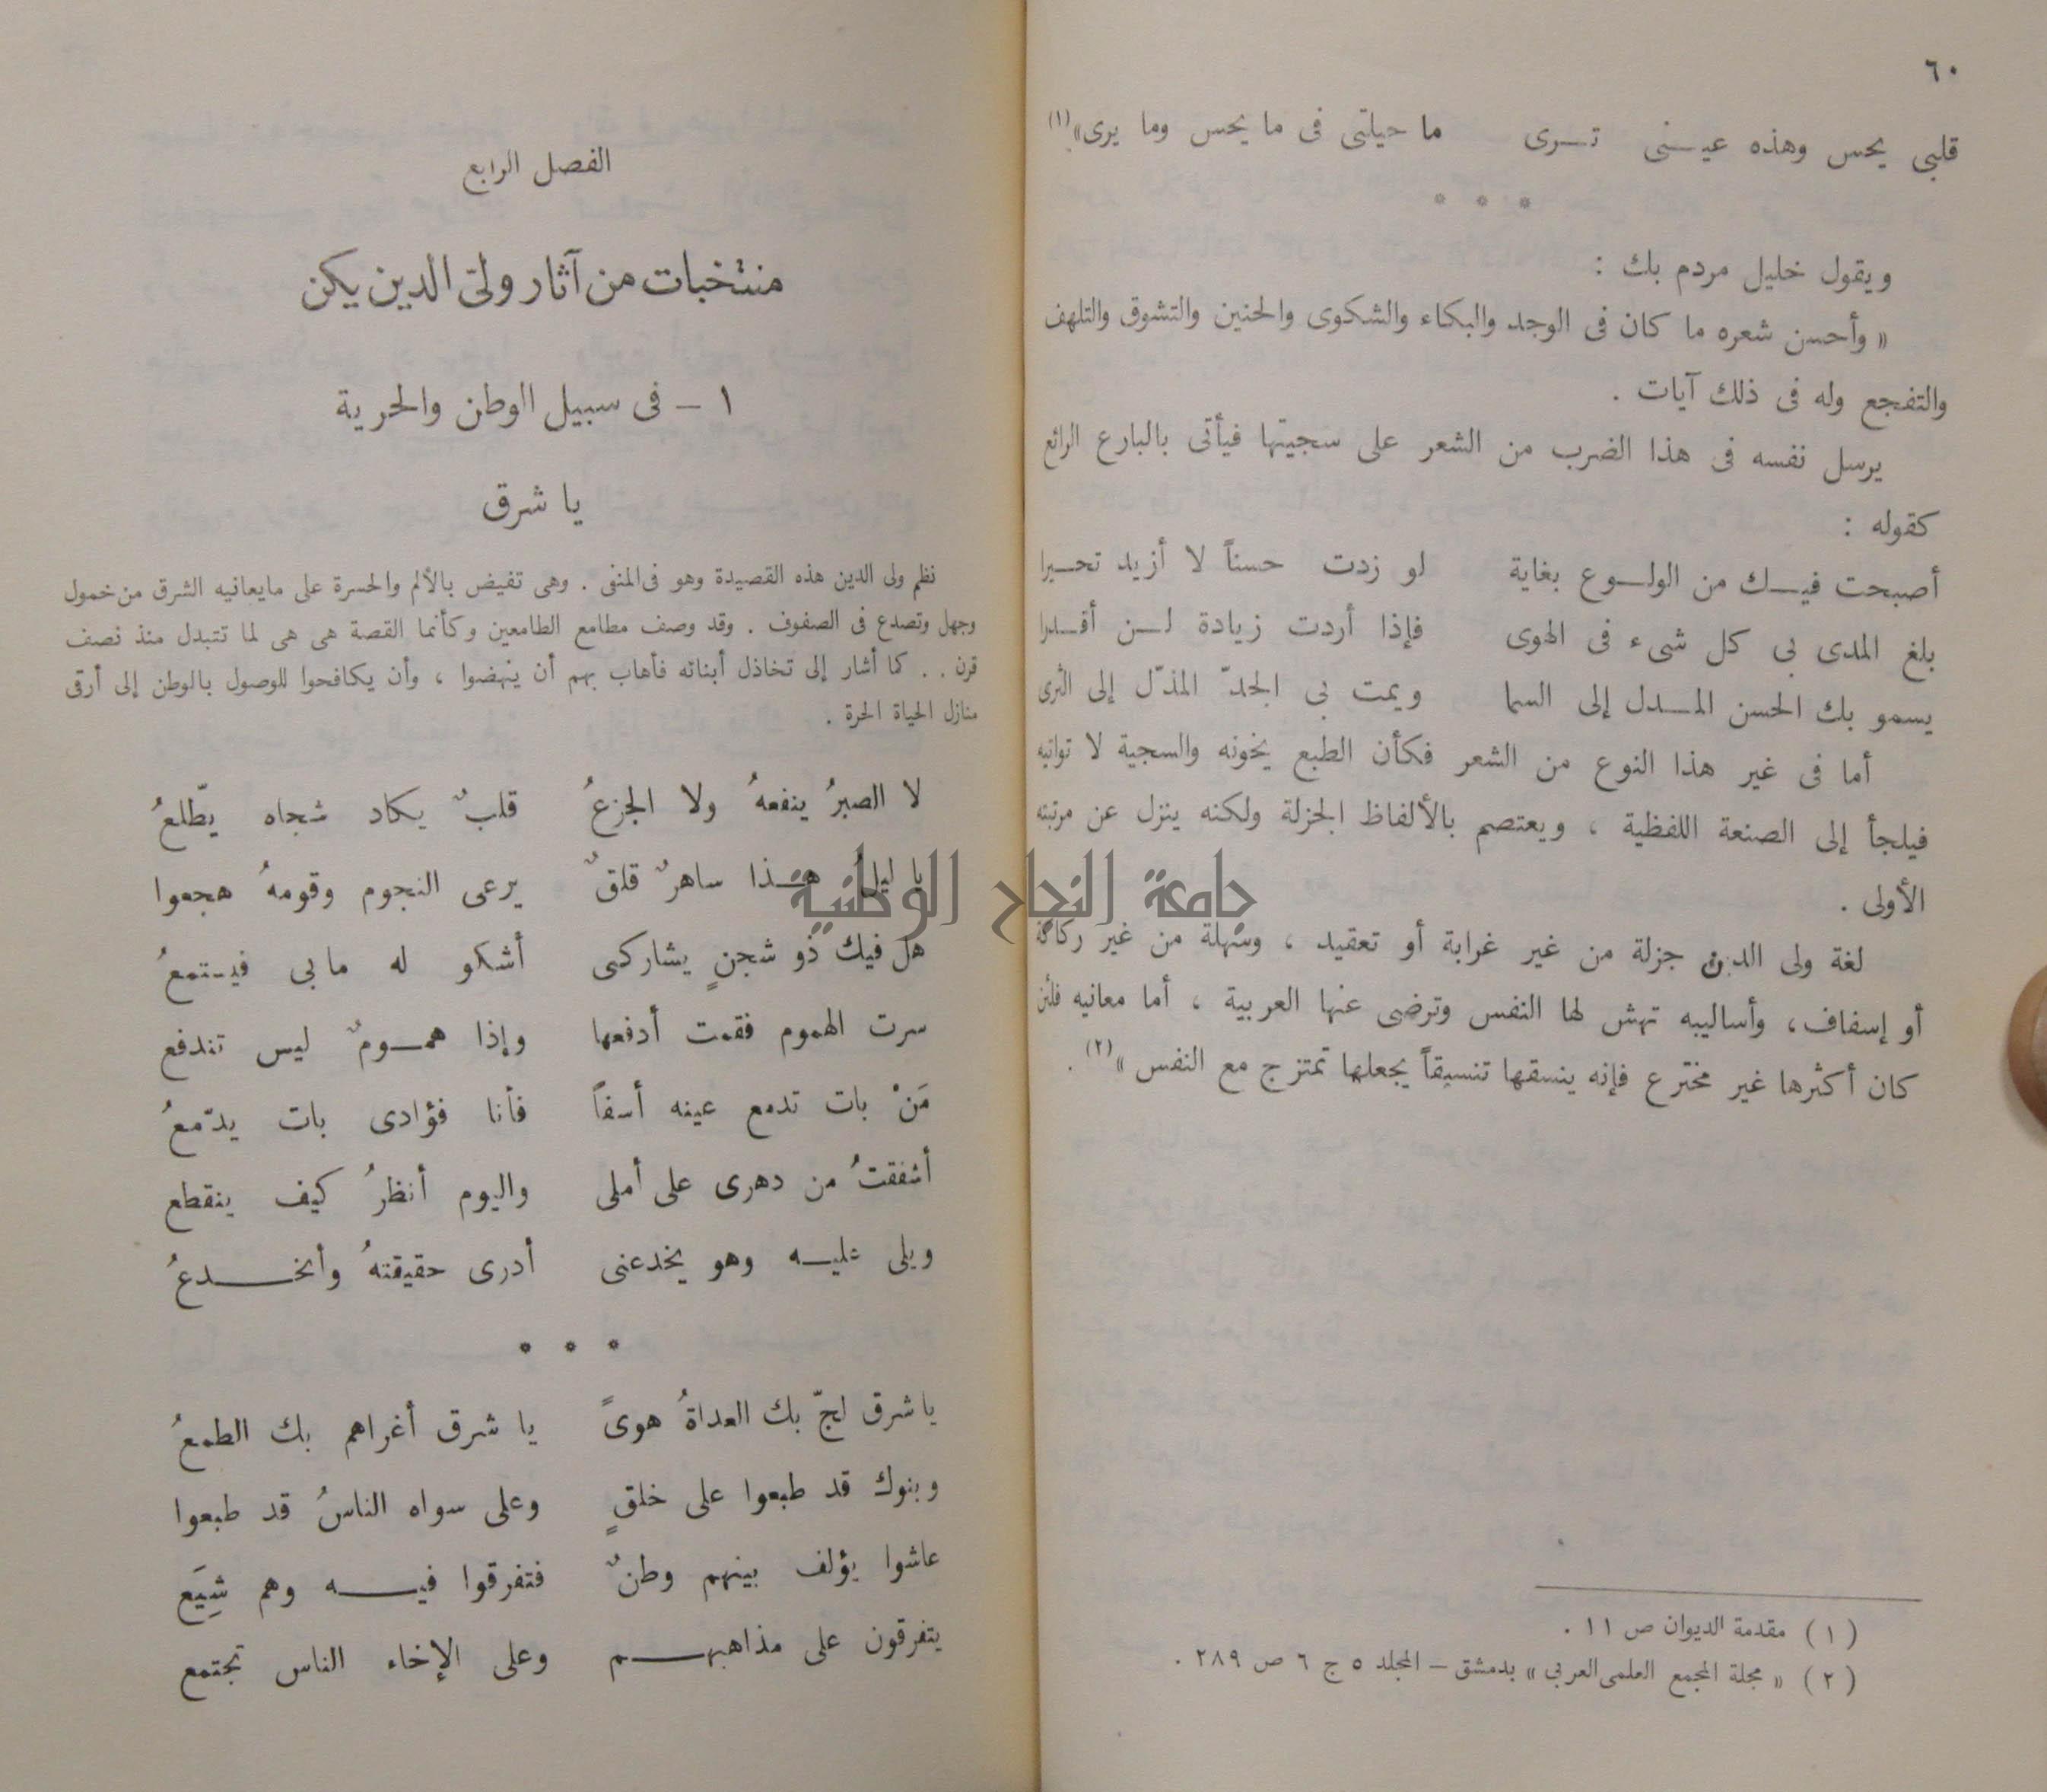 ٦٠
قلبي يحس وهذه عيـنى تـرى ما حيلتى فى ما يحس وما يرى» (١)
* * *
ويقول خليل مردم بك :
« وأحسن شعره ما كان فى الوجد والبكاء والشكوى والحنين والتشوق والتلهف
والتفجع وله فى ذلك آيات .
يرسل نفسه فى هذا الضرب من الشعر على سجيتها فيأتى بالبارع الرائع
كقوله :
أصبحت فيـك من الولـوع بغاية لو زدت حسناً لا أزيد تحـيرا
بلغ المدى بى كل شىء فى الهوى فإذا أردت زيادة لـن أقـدرا
يسمو بك الحسن المـدل إلى السما ويمت بى الجدّ المذّل إلى الثرى
أما فى غير هذا النوع من الشعر فكأن الطبع يخونه والسجية لا تواتيه
فيلجأ إلى الصنعة اللفظية ، ويعتصم بالألفاظ الجزلة ولكنه ينزل عن مرتبته
الأولى .
لغة ولى الدين جزلة من غير غرابة أو تعقيد ، وسهلة من غير ركاكة
أو إسفاف، وأساليبه تهش لها النفس وترضى عنها العربية ، أما معانيه فلئن
كان أكثرها غير مخترع فإنه ينسقها تنسيقاً يجعلها تمتزج مع النفس » (٢) .
(١) مقدمة الديوان ص ١١ .
(٢) « مجلة المجمع العلمى العربي » بدمشق – المجلد ٥ ج ٦ ص ٢٨٩ .
الفصل الرابع
منتخبات من آثار ولىّ الدين يكن
١ – فى سبيل الوطن والحرية
يا شرق
نظم ولى الدين هذه القصيدة وهو فى المنفى . وهى تفيض بالألم والحسرة على مايعانيه الشرق من خمول
وجهل وتصدع فى الصفوف . وقد وصف مطامع الطامعين وكأنما القصة هى هى لما تتبدل منذ نصف
قرن . . كما أشار إلى تخاذل أبنائه فأهاب بهم أن ينهضوا ، وأن يكافحوا للوصول بالوطن إلى أرقى
منازل الحياة الحرة .
لا الصبرُ ينفعهُ ولا الجزعُ قلبٌ يكاد شجاه يطّلعُ
يا ليلُ هـذا ساهرٌ قلقٌ يرعى النجوم وقومهُ هجعوا
هل فيك ذو شجنٍ يشاركنى أشكو له مابى فيستمعُ
سرت الهموم فقمت أدفعها وإذا همـومٌ ليس تندفع
مَنْ بات تدمع عينه أسفاً فأنا فؤادى بات يدّمعُ
أشفقتُ من دهرى على أملى واليوم أنظرُ كيف ينقطع
ويلى عليـه وهو يخدعنى أدرى حقيقتهُ وأنخـدعُ
* * *
يا شرق لجّ بك العداةُ هوىً يا شرق أغراهم بك الطمعُ
وبنوك قد طبعوا على خلقٍ وعلى سواه الناسُ قد طبعوا
عاشوا يؤلف بينهم وطنٌ فتفرقوا فيـه وهم شِيَع
يتفرقون على مذاهبهـم وعلى الإخاء الناس تجتمع
جامعة النجاح الوطنية